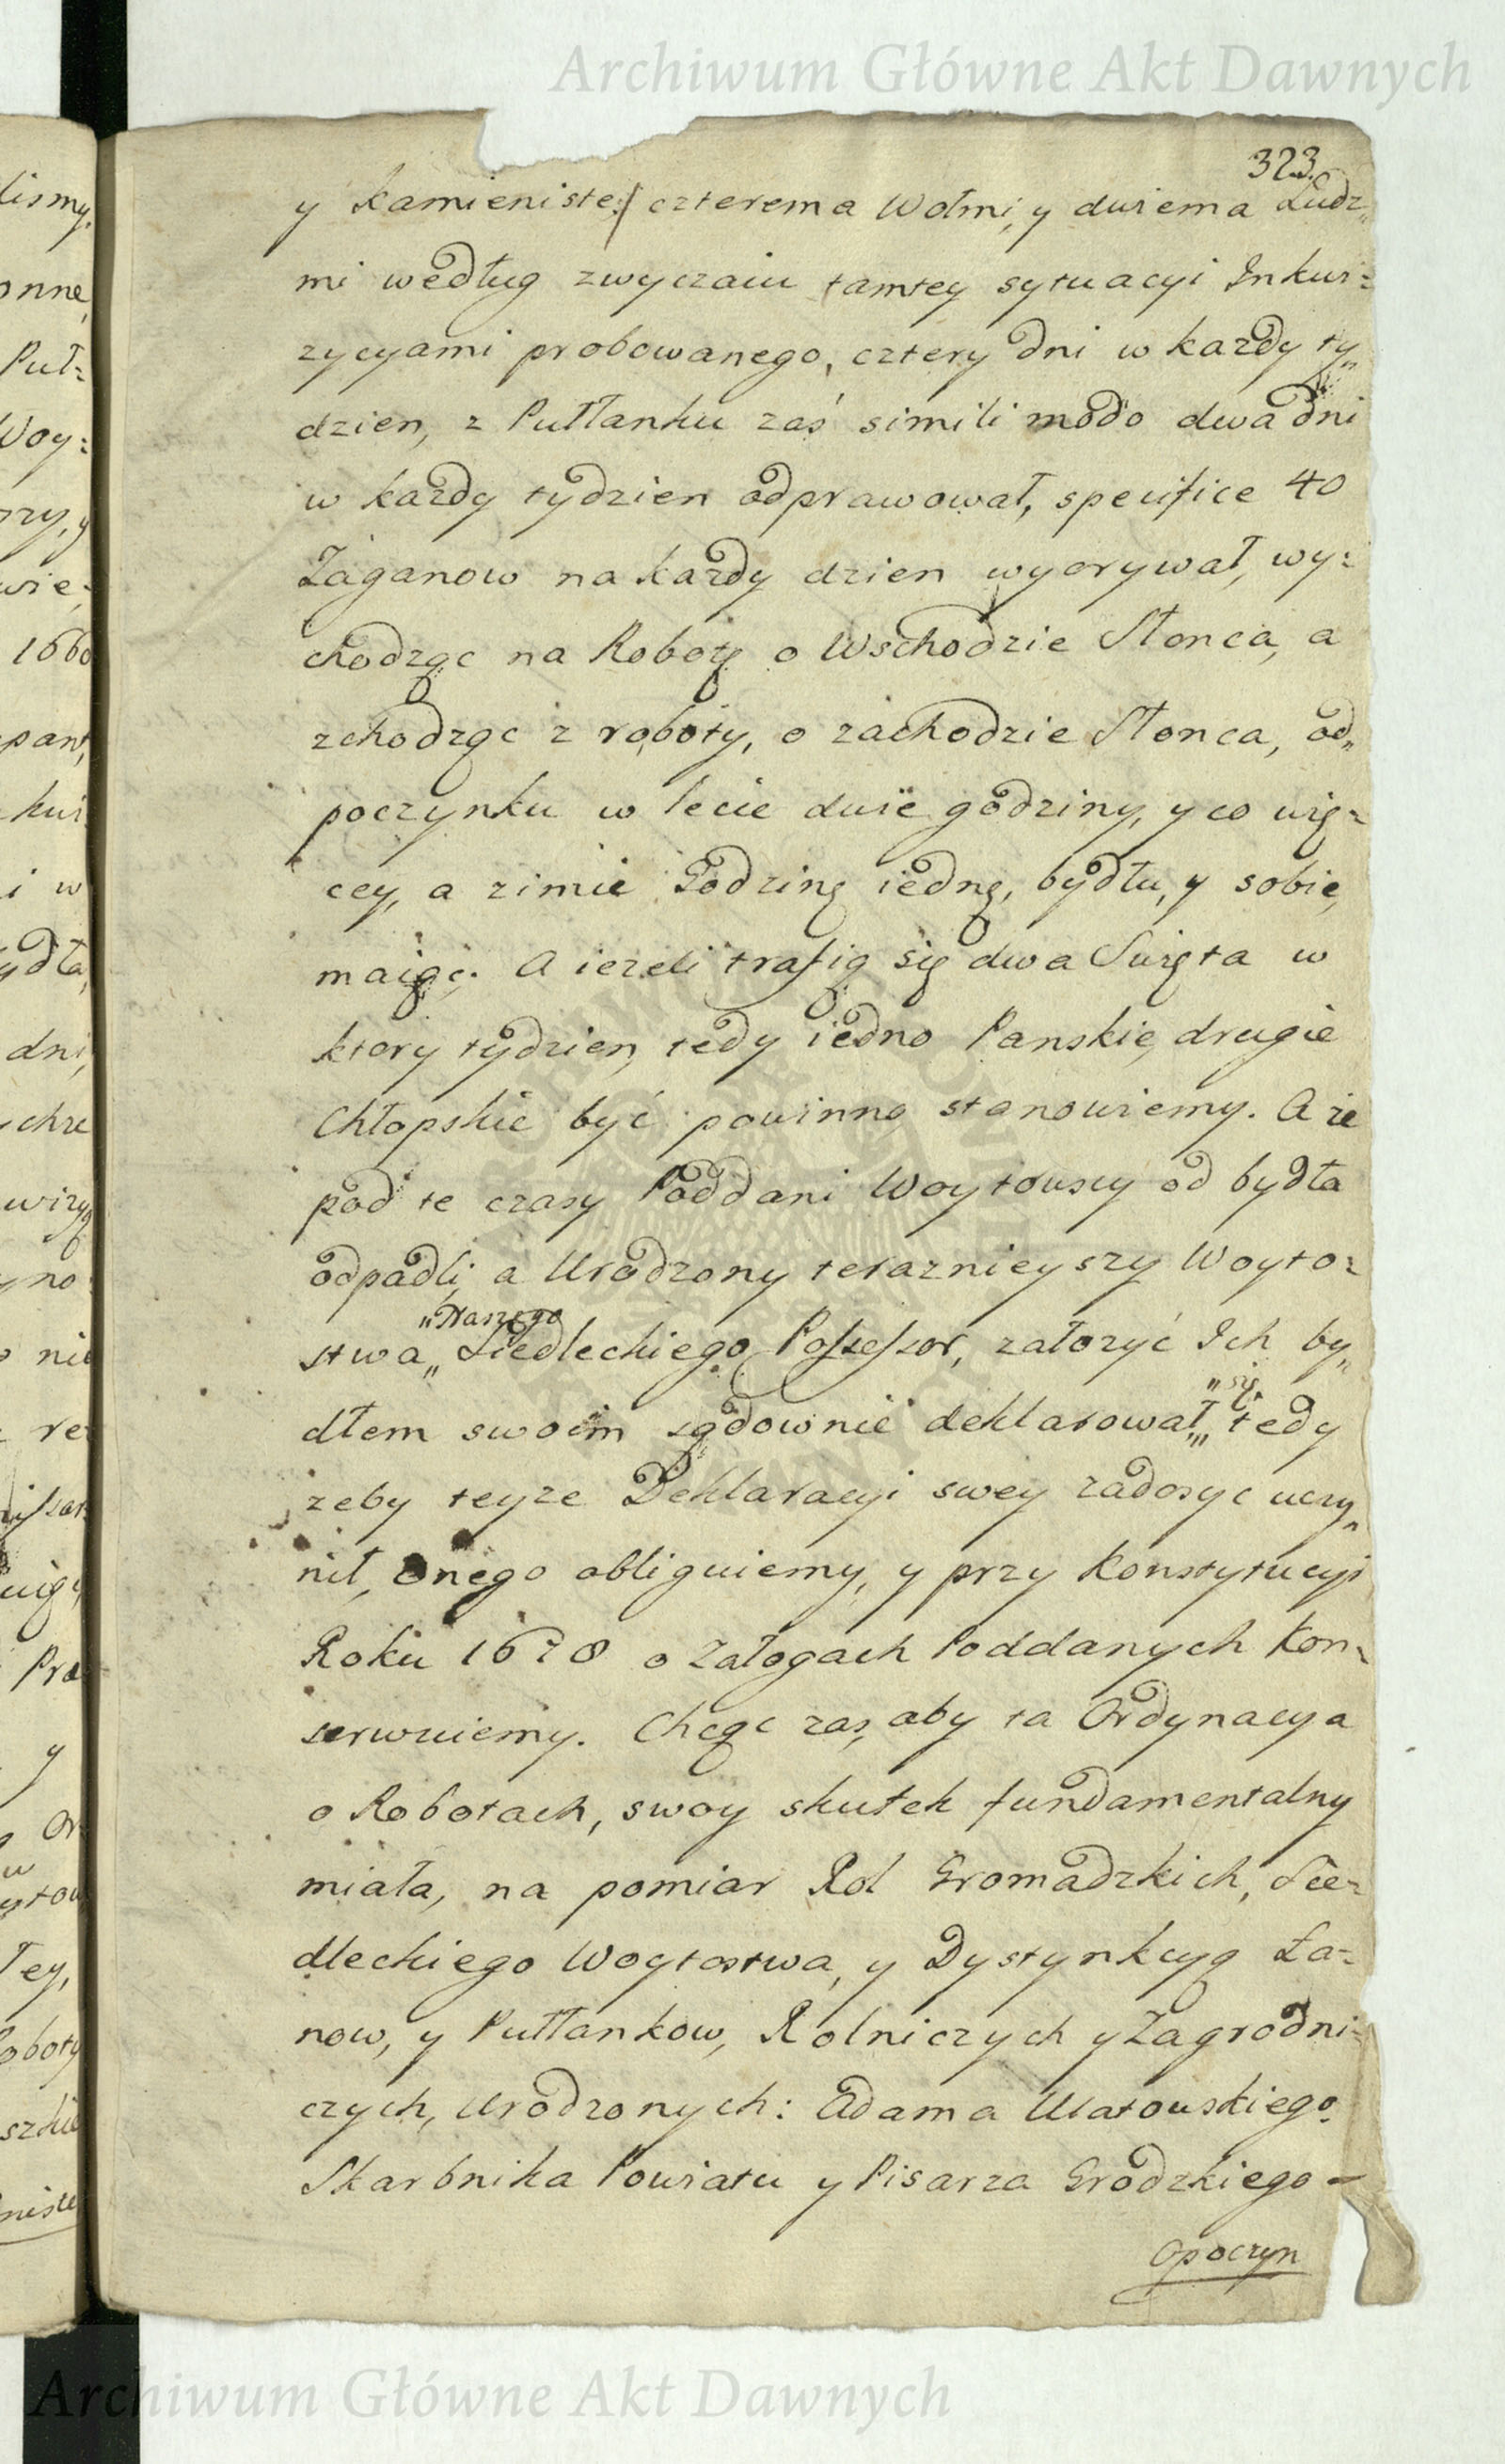 Archiwum Główne Akt Dawnych
323.
y kamieniste:/ czterema Wołmi, y dwiema Ludz„
mi według zwyczaiu tamtey sytuacyi Inkwi=
zycyami probowanego, cztery dni w kazdy ty„
dzien, z Pułłanku zaś simili modo dwa dni
w kazdy tydzien odprawował, specifice 40
Zaganow na kazdy dzien wyorywał, wy=
chodząc na Robotę o Wschodzie Słonca, a
zchodząc z roboty, o zachodzie Słonca, od„
poczynku w lecie dwie godziny, y co wię=
cey, a zimie Godzinę iednę, bydłu, y sobie,
maiąc. A iezeli trafią się dwa Swięta w
ktory tydzien, tedy iedno Panskie, drugie
Chłopskie być powinno, stanowiemy. A ze
pod te czasy Poddani Woytowscy od bydła
odpadli, a Urodzony teraznieyszy Woyto=
„Naszego
stwa„ Siedleckiego Possessor, załozyć Ich by„
„się
dłem swoim sądownie deklarował„ tedy
zeby teyze Deklaracyi swey zadosyc uczy„
nił, Onego obliguiemy, y przy Konstytucyi
Roku 1678 o Załogach Poddanych Kon=
serwuiemy. Chcąc zas, aby ta Ordynacya
o Robotach, swoy skutek fundamentalny
miała, na pomiar Rol Gromadzkich, Sie=
dleckiego Woytostwa, y Dystynkcyą Ła=
now, y Pułłankow, Rolniczych y Zagrodni=
czych, Urodzonych: Adama Ulatowskiego
Skarbnika Powiatu y Pisarza Grodzkiego –
Opoczyn
Archiwum Główne Akt Dawnych